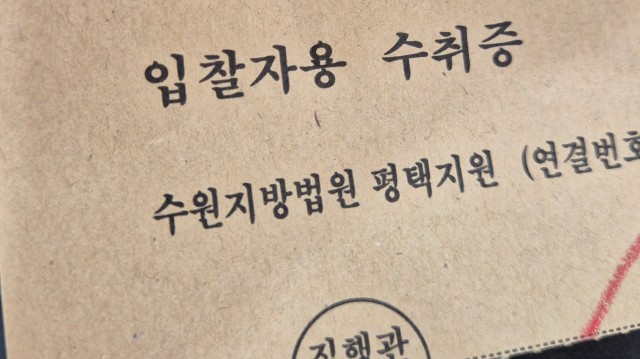 입찰자용 수취증
수원지방법원 평택지원 (연결번호
집행관